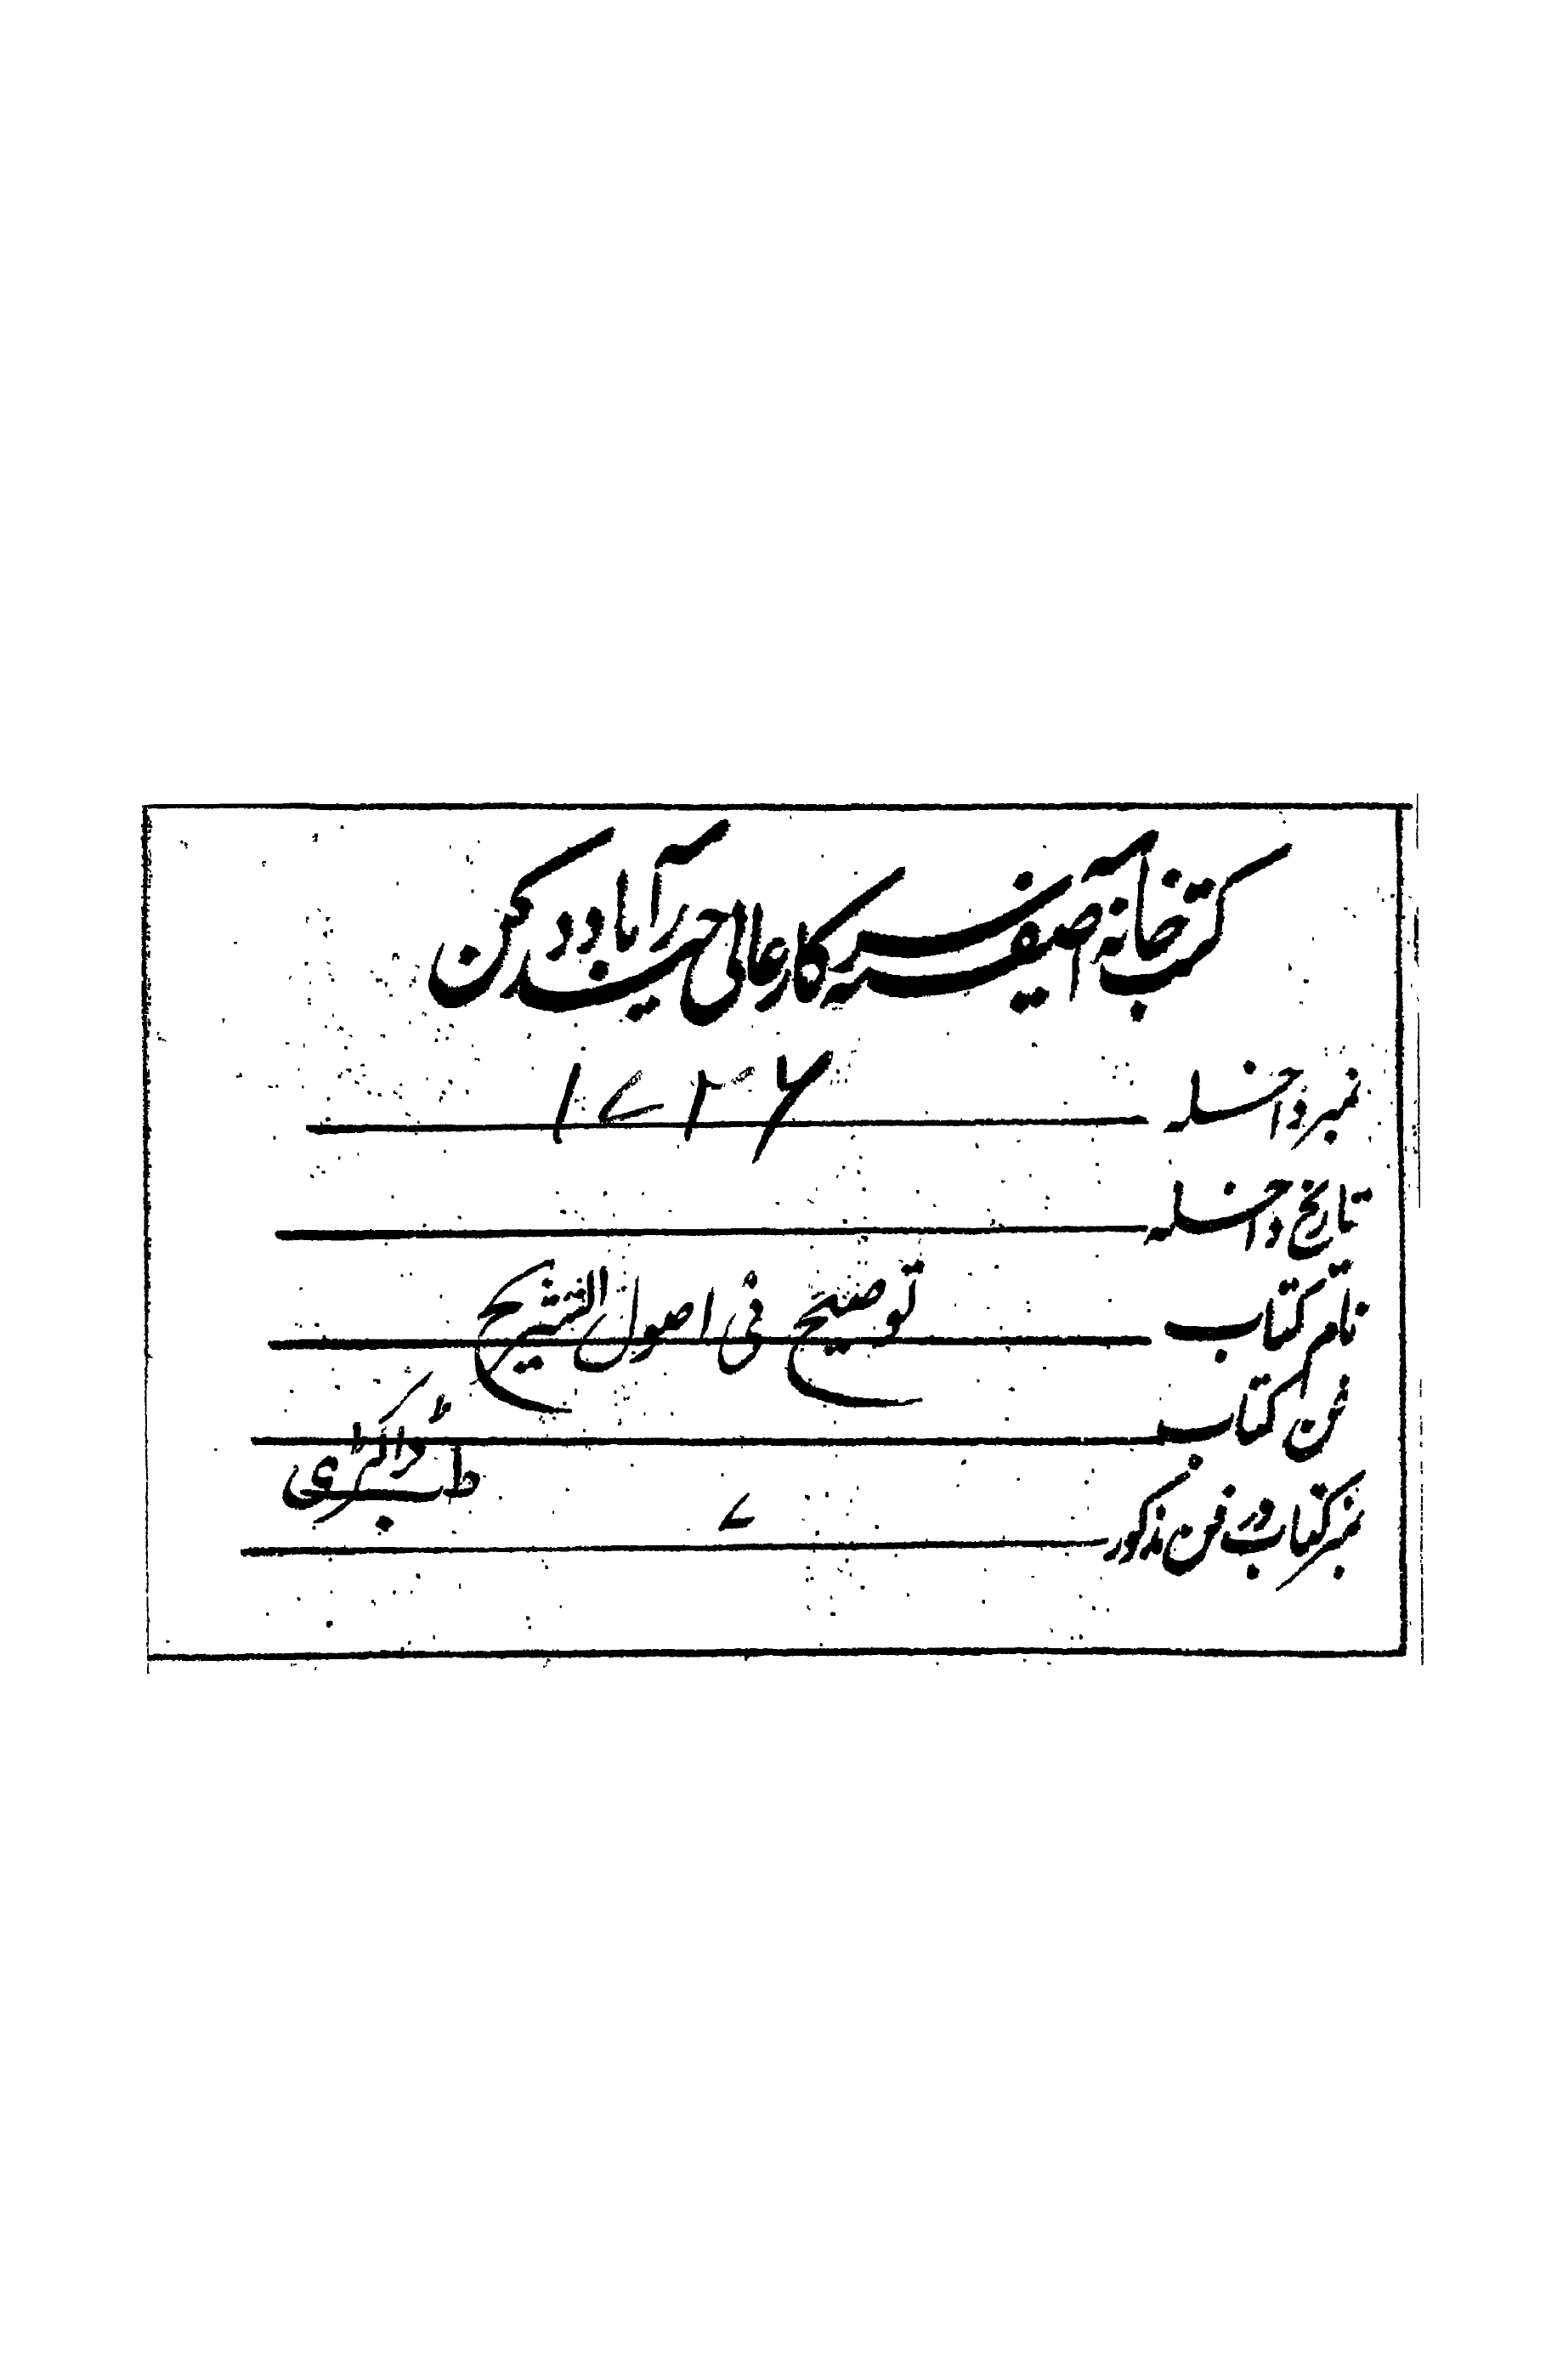 کتب خانہ آصفیہ سرکار عالی حیدرآباد دکن
نمبر داخلہ ۱۷۲۶
تاریخ داخلہ
نام کتاب توضیح فی اصول التشریح
فن کتاب طب ڈاکٹری
نمبر کتاب در فن مذکور ۷